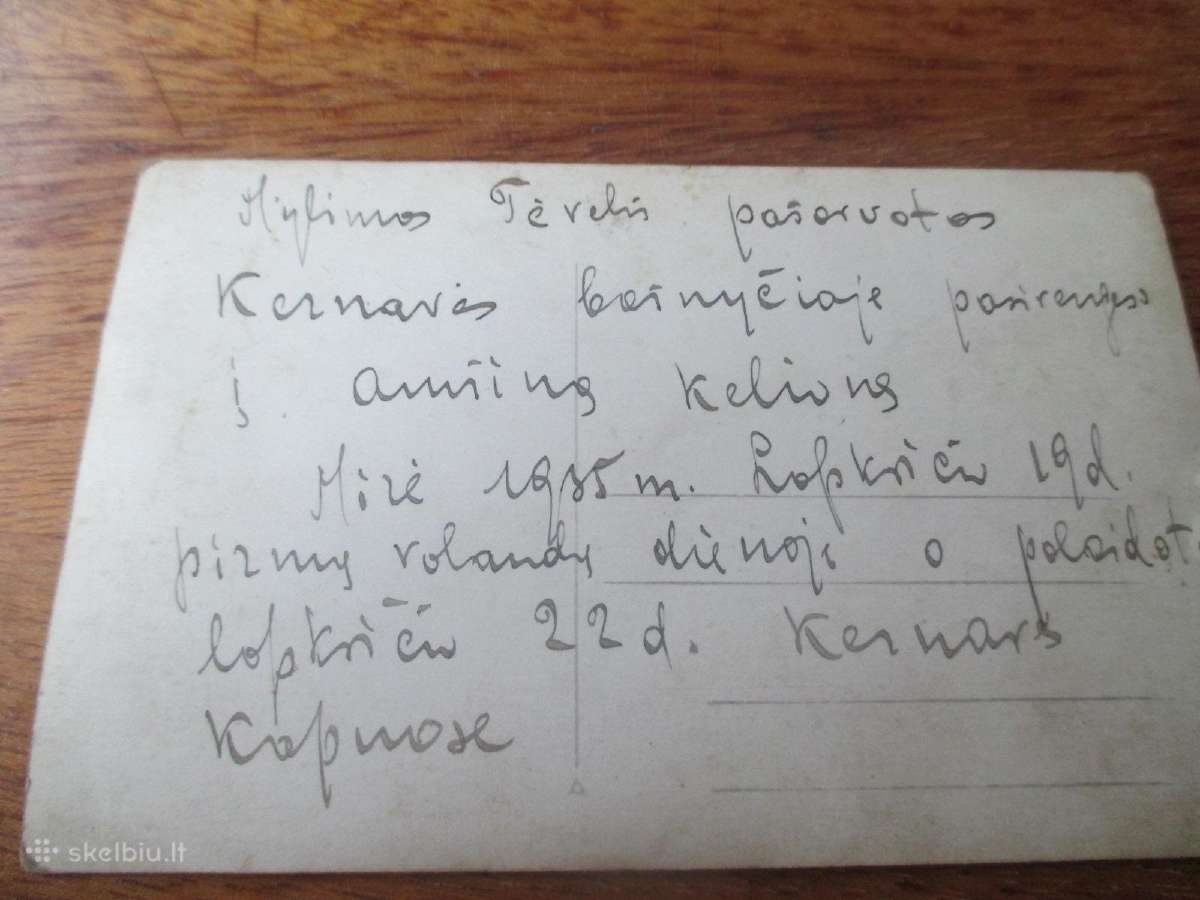 Mylimas Tėvelis pašarvotas
Kernavės bašnyčioje pasirengęs
į amšiną kelioną
Mirė m. Lapkričio 19 d.
pirmą valandą dienoje o palaidot
lapkričio 22 d. Kernavės
Kapuose
skelbiu.lt